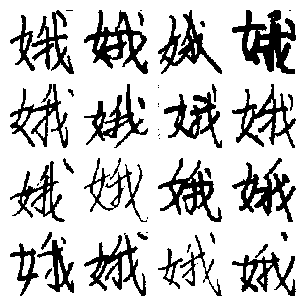 娥娥娥娥
娥娥娥娥
娥娥娥娥
娥娥娥娥